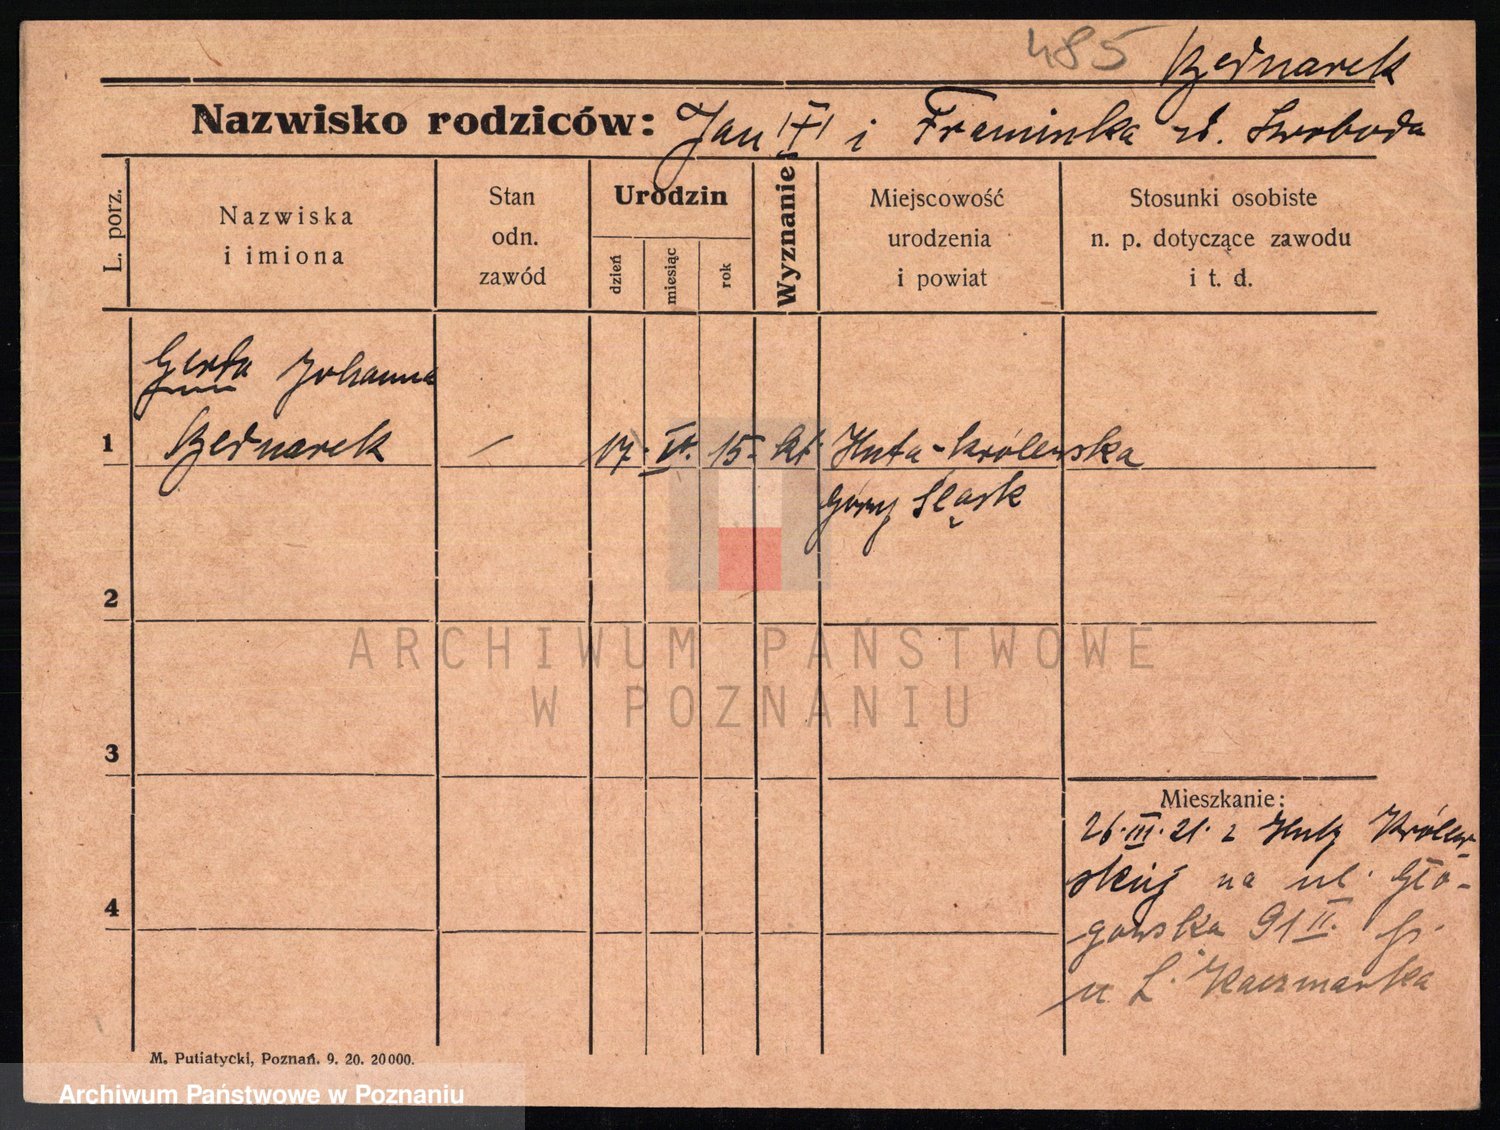 485 Bednarek
Nazwisko rodziców: Jan i Franciszka ur. Swoboda
L. porz.
Nazwiska
i imiona
Stan
odn.
zawód
Urodzin
dzień
miesiąc
rok
Wyznanie
Miejscowość
urodzenia
i powiat
Stosunki osobiste
n. p. dotyczące zawodu
i t. d.
Gerta Johanna
1 Bednarek – 17. IV. 15. kt. Huta-Królewska
Górny Śląsk
2
3
4
Mieszkanie:
26.III.21. z Huty Królew-
skiej na ul. Gło-
gowska 91 II. p.
u L. Kaczmarka
M. Putiatycki, Poznań. 9. 20. 20000.
ARCHIWUM PAŃSTWOWE
W POZNANIU
Archiwum Państwowe w Poznaniu